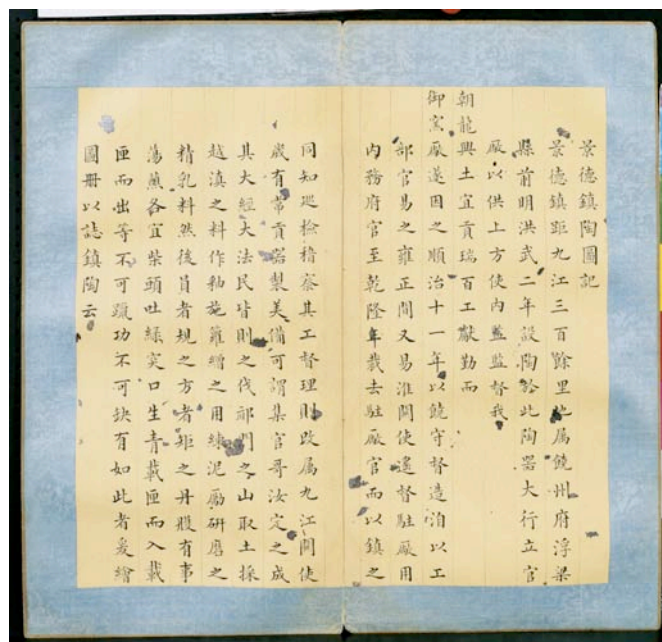 景德鎮陶圖記
景德鎮距九江三百餘里地屬饒州府浮梁
縣前明洪武二年設陶於此陶器大行立官
廠以供上方使內監監督我
朝龍興土宜貢瑞百工獻勤而
御窯廠遂因之順治十一年以饒守督造洎以工
部官易之雍正間又易淮關使遙督駐廠用
內務府官至乾隆年裁去駐廠官而以鎮之
同知巡檢稽察其工督理則改屬九江關使
歲有常貢器製美備可謂集官哥汝定之成
其大經大法民皆則之伐祁門之山取土採
越滇之料作釉施籮繒之用練泥勵研磨之
精乳料然後員者規之方者矩之丹雘有事
蕩燻各宜柴頭吐綠突口生青載匣而入載
匣而出等不可躐功不可缺有如此者爰繪
圖冊以誌鎮陶云